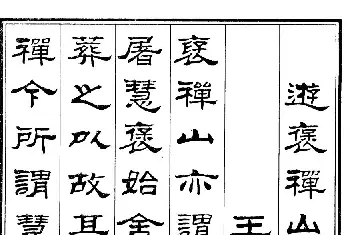 遊褒禪山
王
褒禪山亦謂
屠慧褒始舍
葬之以故其
禪今所謂慧